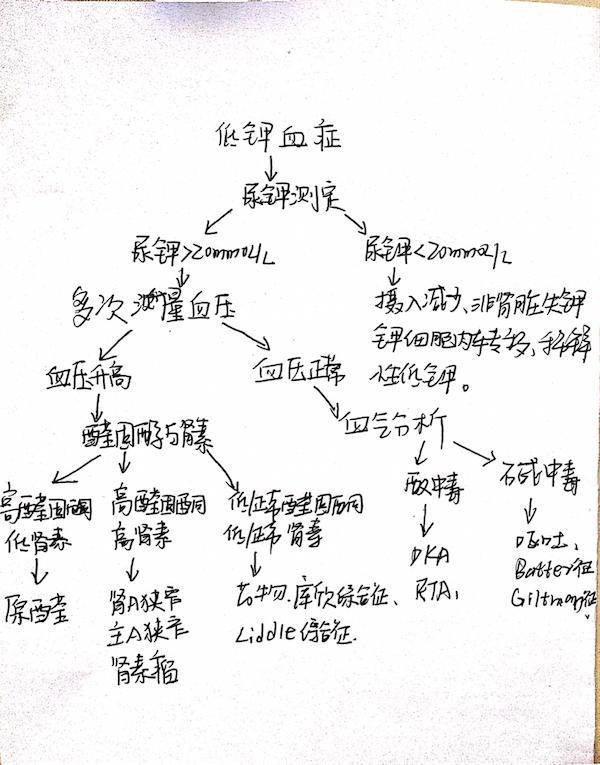 低钾血症
尿钾测定
尿钾>20mmol/L
尿钾<20mmol/L
多次测量血压
摄入减少、非肾脏失钾
钾细胞内转移、稀释
性低钾。
血压升高
血压正常
醛固酮与肾素
血气分析
高醛固酮
低肾素
高醛固酮
高肾素
低/正常醛固酮
低/正常肾素
酸中毒
碱中毒
原醛
肾A狭窄
主A狭窄
肾素瘤
药物、库欣综合征、
Liddle综合征.
DKA
RTA、
呕吐、
Batter征
Giltman征